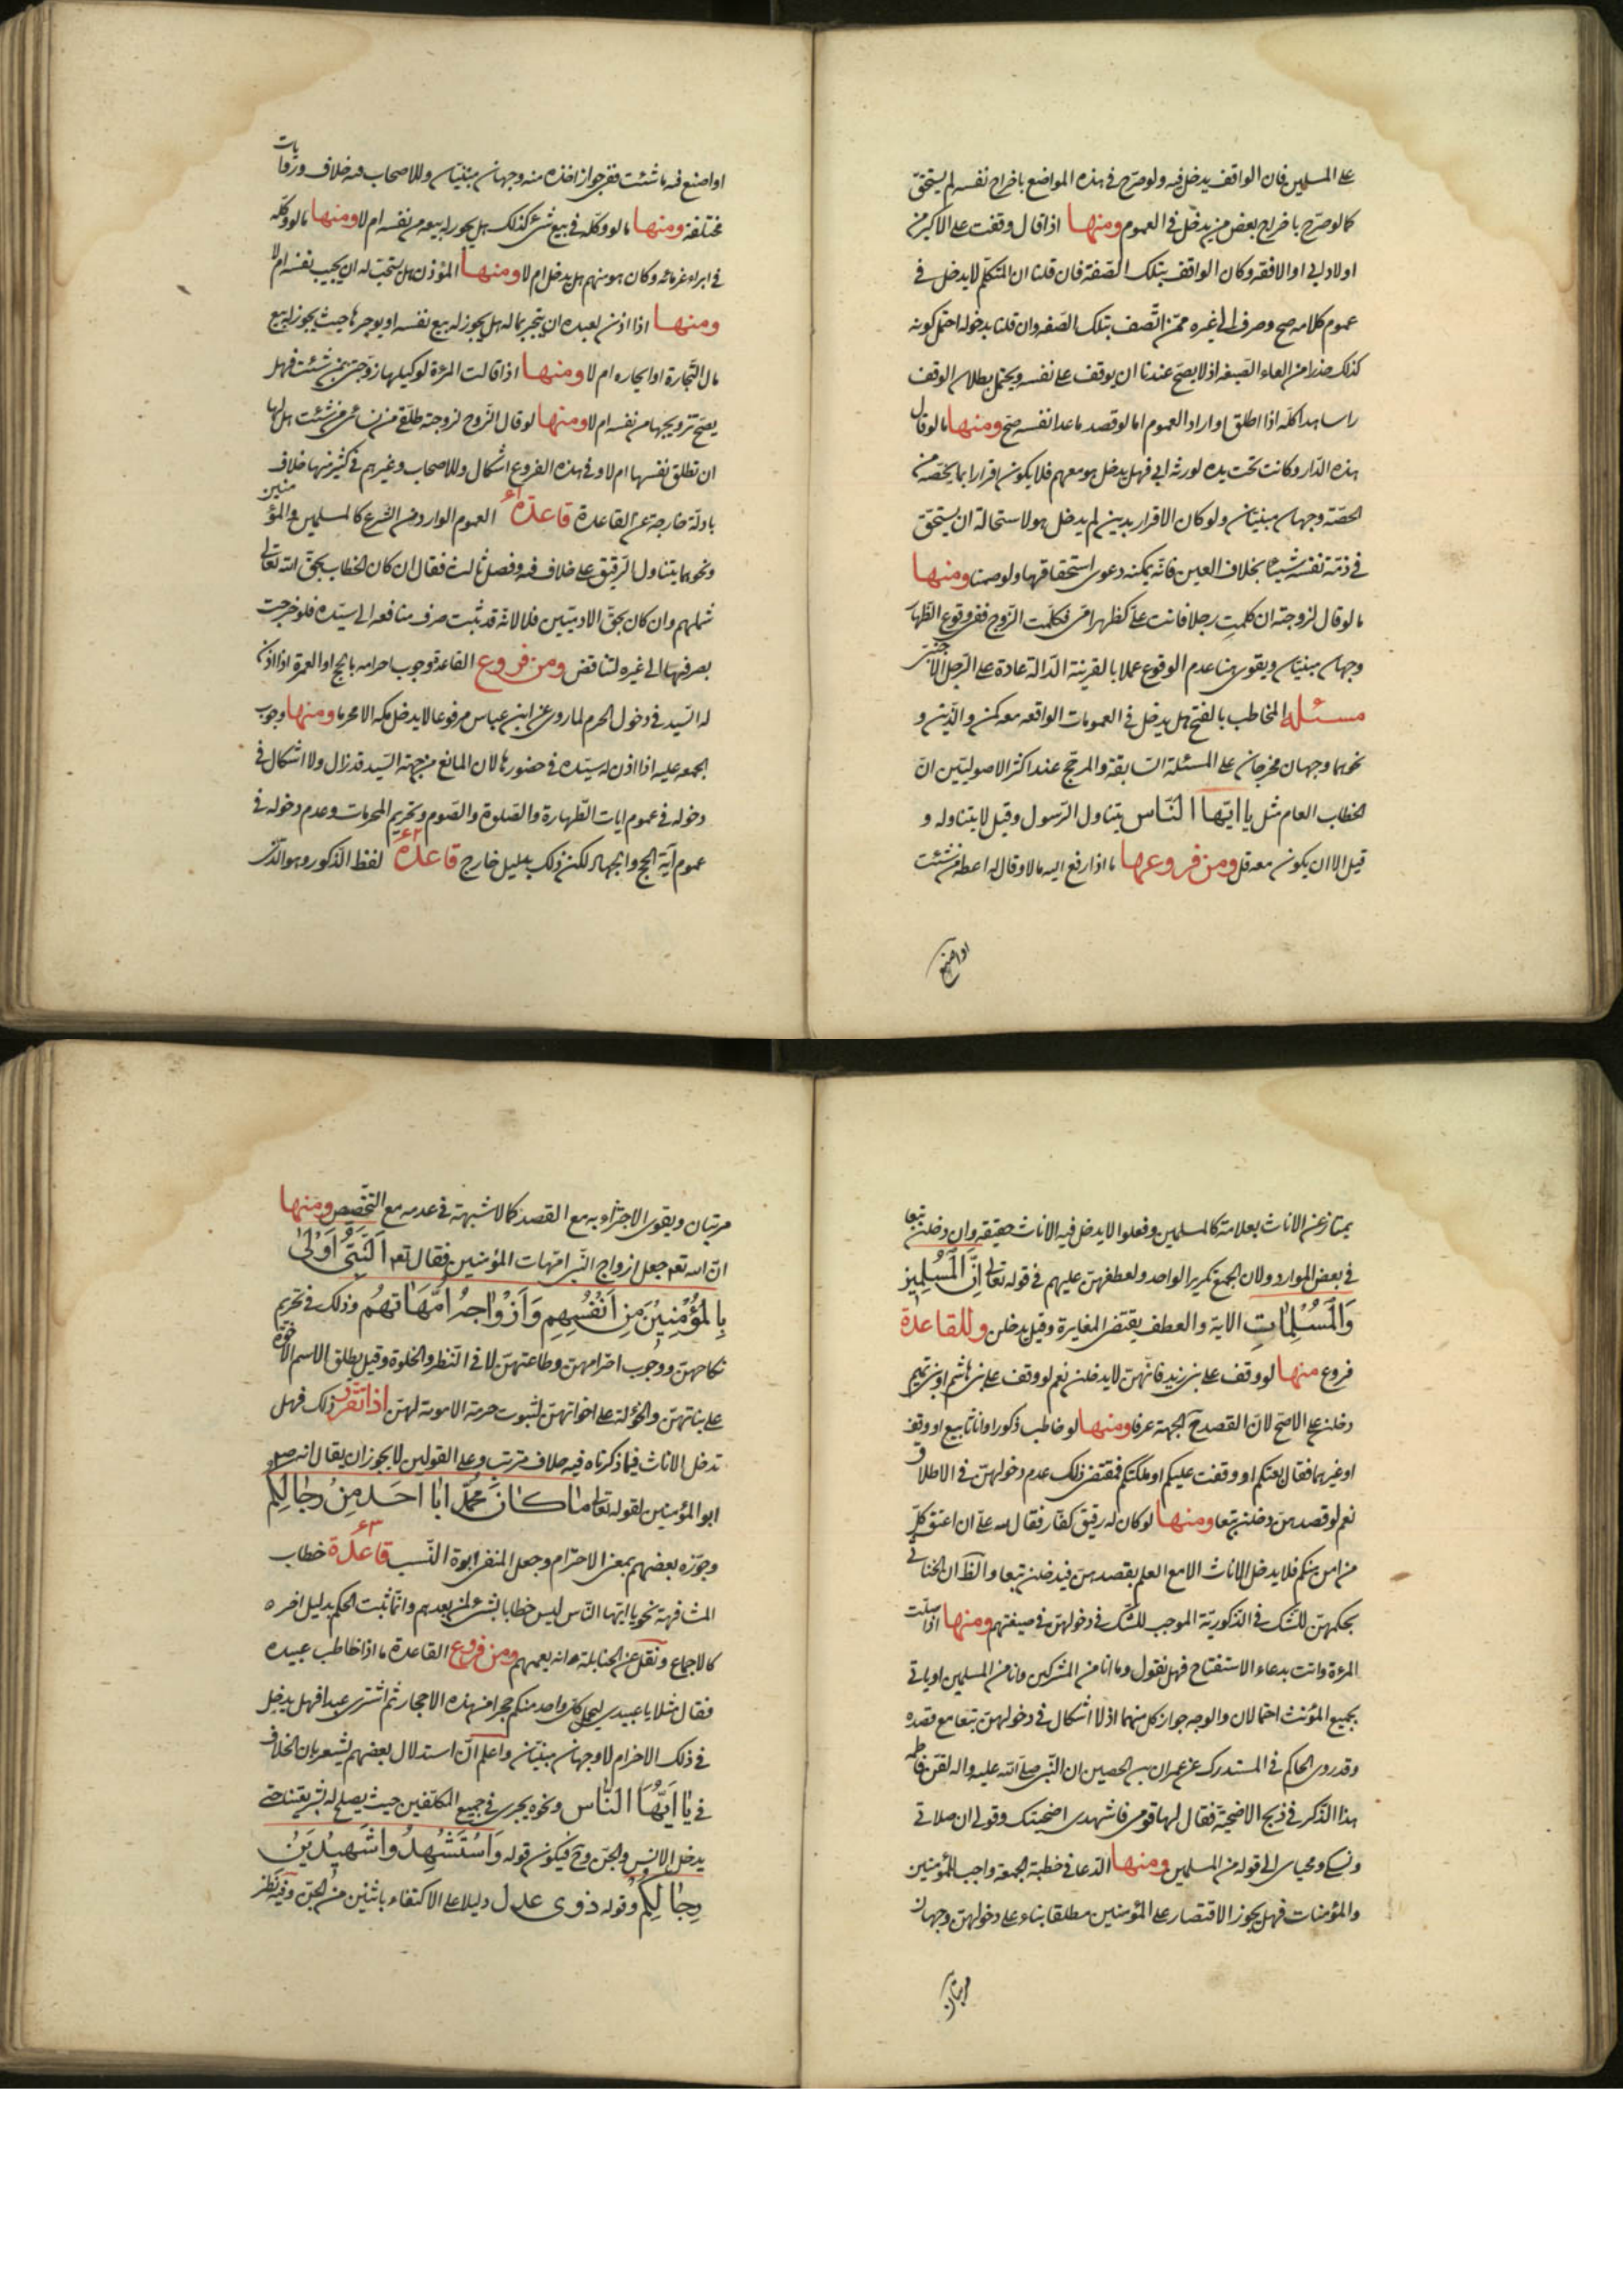 على المسلمين فان الواقف يدخل فيه ولو صرّح في هذه المواضع باخراج نفسه لم يستحق
كما لو صرّح باخراج بعض من يدخل في العموم ومنها اذا قال وقفت على الاكبر من
اولاد ابي او الافقه وكان الواقف بتلك الصّفة فان قلنا ان المتكلّم لا يدخل في
عموم كلامه صح وصرف الى غيره ممّن اتّصف بتلك الصّفه وان قلنا بدخوله احتمل كونه
كذلك حذرا من الغاء الصّيغه اذ لا يصحّ عندنا ان يوقف على نفسه ويحتمل بطلان الوقف
راسا هذا كلّه اذا اطلق او اراد العموم اما لو قصد ما عدا نفسه صحّ ومنها ما لو قال
هذه الدّار وكانت تحت يده لورثة ابي فهل يدخل هو معهم فلا يكون اقرارا بما يخصّه من
الحصّة وجهان مبنيّان ولو كان الاقرار بدين لم يدخل هو لاستحالة ان يستحق
في ذمّة نفسه شيئا بخلاف العين فانّه يمكنه دعوى استحقاقها ولو ضمنا ومنها
ما لو قال لزوجته ان كلمت رجلا فانت علىّ كظهر امّي فكلّمت الزّوج ففي وقوع الظّهار
وجهان مبنيّان ويقوى هنا عدم الوقوع عملا بالقرينة الدّالة عادة على الرّجل الاجنبىّ
مسئله المخاطب بالفتح هل يدخل في العمومات الواقعه معه كمن والّذين و
نحوهما وجهان مخرجان على المسئلة السّابقة والمرجّح عند اكثر الاصوليّين انّ
الخطاب العام مثل يا ايّها النّاس يتناول الرّسول وقيل لا يتناوله و
قيل الا ان يكون معه قل ومن فروعها ما اذا رفع اليه مالا وقال له اعطه من شئت
او اصنع
او اصنع فيه ما شئت ففي جواز اخذه منه وجهان مبنيّان وللاصحاب فيه خلاف وروايات
مختلفة ومنها ما لو وكّله في بيع شئ كذلك هل يجوز له بيعه من نفسه ام لا ومنها ما لو وكّله
في ابراء غرمائه وكان هو منهم هل يدخل ام لا ومنها المؤذن هل يستحبّ له ان يجيب نفسه ام لا
ومنها اذا اذن لعبده ان يتجر بماله هل يجوز له بيع نفسه او يوجرها حيث يجوز له بيع
مال التّجارة او ايجاره ام لا ومنها اذا قالت المرءة لوكيلها زوّجني بمن شئت فهل
يصحّ تزويجها من نفسه ام لا ومنها لو قال الزّوج لزوجته طلّقي من نسائى من شئت هل لها
ان تطلق نفسها ام لا وفي هذه الفروع اشكال وللاصحاب وغيرهم في كثير منها خلاف
بادلّة خارجة عن القاعدة قاعدة ٤١ العموم الوارد من الشّرع كالمسلمين والمؤمنين
ونحوهما يتناول الرّقيق على خلاف فيه وفصل ثالث فقال ان كان الخطاب بحقّ الله تعالى
شملهم وان كان بحقّ الادميّين فلا لانه قد ثبت صرف منافعه الى سيّده فلو خرجت
بصرفها الى غيره لتناقض ومن فروع القاعدة وجوب احرامه بالحج او العمرة اذا اذن
له السّيد في دخول الحرم لما روى عن ابن عباس مرفوعا لا يدخل مكه الا محرما ومنها وجوب
الجمعه عليه اذا اذن له سيّده في حضورها لان المانع من جهة السّيد قد زال ولا اشكال في
دخوله في عموم ايات الطّهارة والصّلوة والصّوم وتحريم المحرمات وعدم دخوله في
عموم آية الحج والجهاد لكن ذلك بدليل خارج قاعدة ٤٢ لفظ الذكور وهو الّذى
يمتاز عن الاناث بعلامة كالمسلمين وفعلوا لا يدخل فيه الاناث حقيقة وان دخلن تبعا
في بعض الموارد ولان الجمع تكرير الواحد ولعطفهنّ عليهم في قوله تعالى انّ المسلمين
والمسلمات الاية والعطف يقتضى المغايرة وقيل يدخلن وللقاعدة
فروع منها لو وقف على بني زيد فانهنّ لا يدخلن نعم لو وقف على بني هاشم او بني تميم
دخلن على الاصحّ لانّ القصد ح الجهة عرفا ومنها لو خاطب ذكورا واناثا ببيع او وقف
او غيرهما فقال بعتكم او وقفت عليكم او ملّكتكم فمقتضى ذلك عدم دخولهنّ في الاطلاق
نعم لو قصدهنّ دخلن تبعا ومنها لو كان له رقيق كفّار فقال لله علىّ ان اعتق كلّ
من امن منكم فلا يدخل الاناث الا مع العلم بقصدهنّ فيدخلن تبعا والظّ ان الخناثى
بحكمهنّ للشّك في الذّكوريّة الموجب للشّك في دخولهنّ في صيغتهم ومنها اذا صلّت
المرءة واتت بدعاء الاستفتاح فهل تقول وما انا من المشركين وانا من المسلمين او ياتي
بجميع المؤنث احتمالان والوجه جواز كل منهما اذ لا اشكال في دخولهنّ تبعا مع قصده
وقد روى الحاكم في المستدرك عن عمران بن الحصين ان النّبي صلّى الله عليه واله لقّن فاطمه
هذا الذّكر في ذبح الاضحيّة فقال لها قومي فاشهدى اضحيّتك وقولى ان صلاتي
ونسكي ومحياى الى قوله من المسلمين ومنها الدّعا في خطبة الجمعة واجب للمؤمنين
والمؤمنات فهل يجوز الاقتصار على المؤمنين مطلقا بناء على دخولهنّ وجهان
مرتبان
مرتبان ويقوى الاجتزاء به مع القصد كما لا شبهة في عدمه مع التخصيص ومنها
انّ الله تعه جعل ازواج النّبي امّهات المؤمنين فقال تعه النّبىّ اولى
بالمؤمنين من انفسهم وازواجه امّهاتهم وذلك في تحريم
نكاحهنّ ووجوب احترامهنّ وطاعتهنّ لا في النّظر والخلوة وقيل يطلق الاسم الاخوّة
على بناتهنّ والخؤلة على اخواتهنّ لثبوت حرمة الامومة لهنّ اذا تقرّر ذلك فهل
تدخل الاناث فيما ذكرناه فيه خلاف مترتب وعلى القولين لا يجوز ان يقال انه ص
ابو المؤمنين لقوله تعالى ما كان محمّد ابا احد من رجالكم
وجوّزه بعضهم بمعنى الاحترام وجعل المنفى ابوة النّسب قاعدة ٤٣ خطاب
المشافهة نحو يا ايها النّاس ليس خطابا لمن بعدهم وانّما ثبت الحكم بدليل اخر
كالاجماع ونقل عن الحنابلة انه يعمهم ومن فروع القاعدة ما اذا خاطب عبيده
فقال مثلا يا عبيدى ليحمل كل واحد منكم حجرا من هذه الاحجار ثم اشترى عبدا فهل يدخل
في ذلك الاخرام لا وجهان مبنيّان واعلم انّ استدلال بعضهم يشعر بان الخلاف
في يا ايّها النّاس ونحوه يجرى في جميع المكلّفين حيث يصلح له حتى
يدخل الانس والجنّ وح فيكون قوله واستشهدوا شهيدين
من رجالكم وقوله ذوى عدل دليلا على الاكتفاء باثنين من الجنّ وفيه نظر